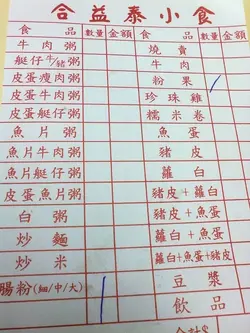 合益泰小食
食品 數量 金額 食品 數量 金額
牛肉粥 燒賣
艇仔牛/豬粥 牛肉
皮蛋瘦肉粥 粉果
皮蛋牛肉粥 珍珠雞
皮蛋艇仔粥 糯米卷
魚片粥 魚蛋
魚片牛肉粥 豬皮
魚片艇仔粥 蘿白
皮蛋魚片粥 豬皮+蘿白
白粥 豬皮+魚蛋
炒麵 蘿白+魚蛋
炒米 蘿白+魚蛋+豬皮
腸粉(細/中/大) 豆漿
飲品